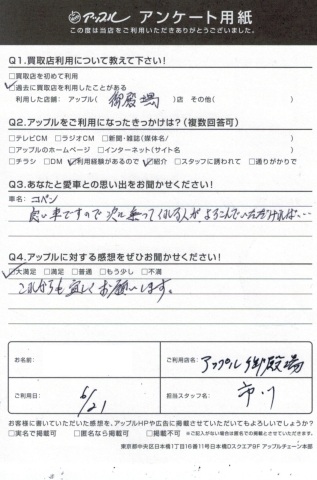 アップル アンケート用紙
この度は当店をご利用いただきありがとうございました。
Q1.買取店利用について教えて下さい!
□買取店を初めて利用
☑過去に買取店を利用したことがある
利用した店舗: アップル( 御殿場 )店 その他( )
Q2.アップルをご利用になったきっかけは?(複数回答可)
□テレビCM □ラジオCM □新聞・雑誌(媒体名/ )
□アップルのホームページ □インターネット(サイト名 )
□チラシ □DM ☑利用経験があるので ☑紹介 □スタッフに誘われて □通りがかりで
Q3.あなたと愛車との思い出をお聞かせください!
車名: コペン
良い車ですので次に乗ってくれる人が、よろこんでいただければ…
Q4.アップルに対する感想をぜひお聞かせください!
☑大満足 □満足 □普通 □もう少し □不満
これからも宜しくお願いします。
お名前: ご利用店名: アップル御殿場
ご利用日: 6/21 担当スタッフ名: 市川
お客様に書いていただいた感想を、アップルHPや広告に掲載させていただいてもよろしいでしょうか?
□実名で掲載可 □匿名なら掲載可 □掲載不可 ※ご記入がない場合は匿名での掲載とさせていただきます。
東京都中央区日本橋1丁目16番11号日本橋Dスクエア9F アップルチェーン本部